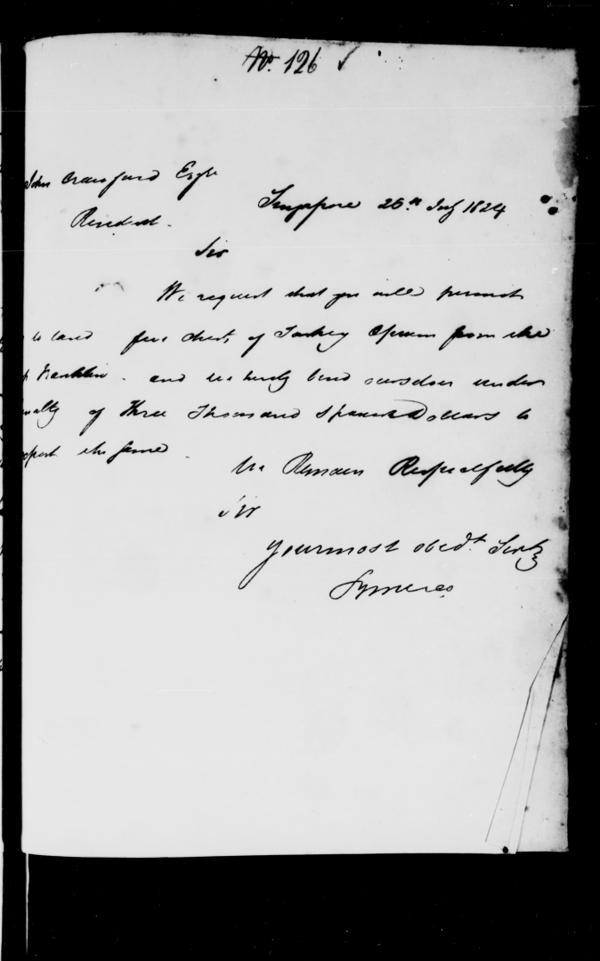 No. 126
John Crawfurd Esqr
Singapore 26th July 1824
Resident.
Sir
We request that you will permit
to land five chests of Turkey Opium from the
Franklin. and we hereby bind ourselves under
of Three Thousand Spanish Dollars to
export the same
We Remain Respectfully
Sir
your most obedt. Servts